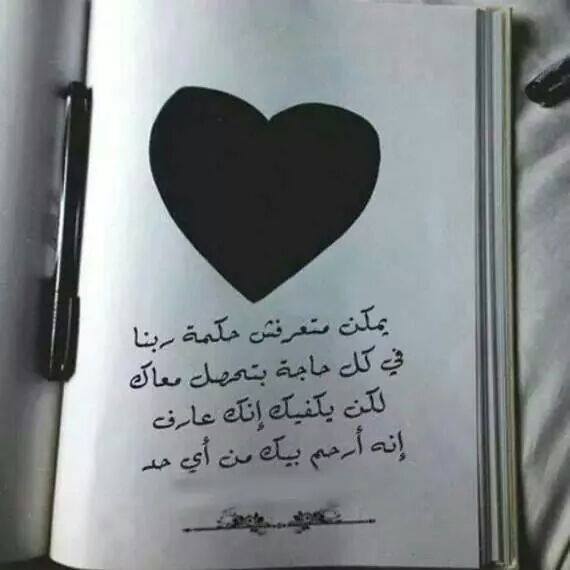 يمكن متعرفش حكمة ربنا
في كل حاجة بتحصل معاك
لكن يكفيك إنك عارف
إنه أرحم بيك من أي حد